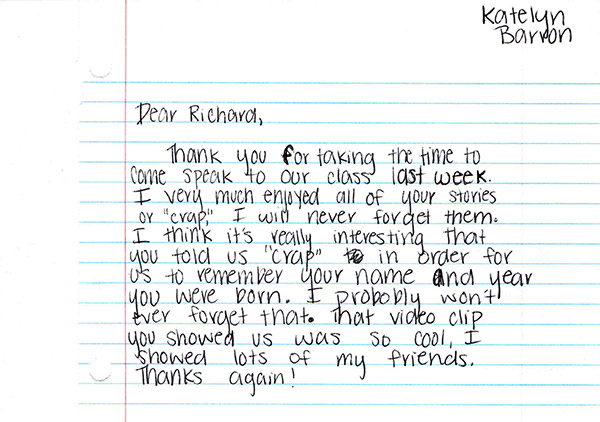 Katelyn
Barron
Dear Richard,
Thank you for taking the time to
come speak to our class last week.
I very much enjoyed all of your stories
or "crap," I will never forget them.
I think it's really interesting that
you told us "crap" in order for
us to remember your name and year
you were born. I probobly won't
ever forget that. That video clip
you showed us was so cool, I
showed lots of my friends.
Thanks again!